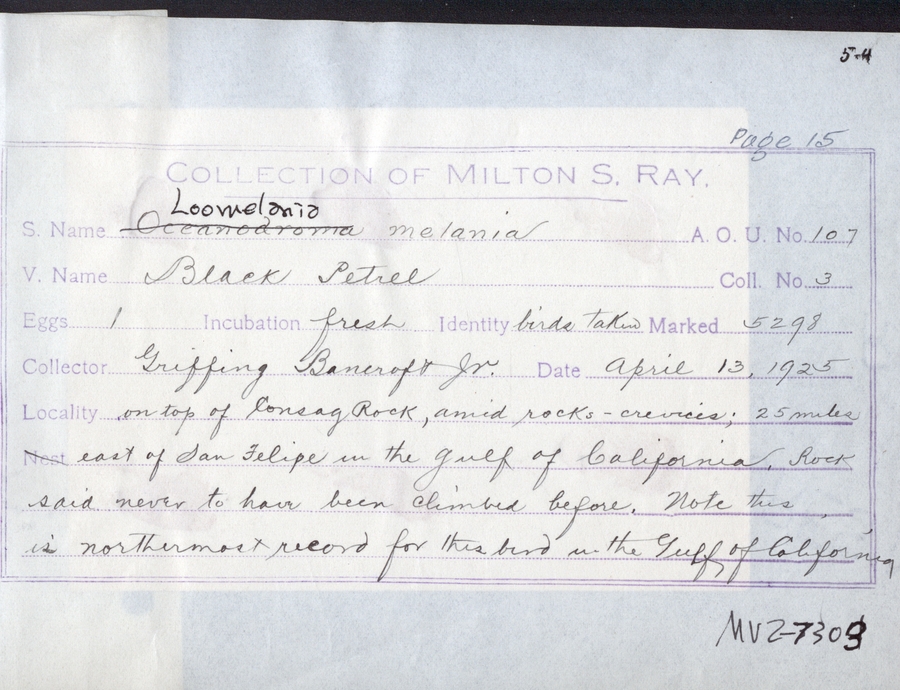 5-4
Page 15
COLLECTION OF MILTON S. RAY.
Loomelania
S. Name Oceanodroma melania A. O. U. No. 107
V. Name Black Petrel Coll. No. 3
Eggs 1 Incubation fresh Identity birds taken Marked 5298
Collector Griffing Bancroft Jr. Date April 13, 1925
Locality on top of Consag Rock, amid rocks - crevices; 25 miles
Nest east of San Felipe in the Gulf of California. Rock
said never to have been climbed before. Note this
is northermost record for this bird in the Gulf of California
MVZ-7309